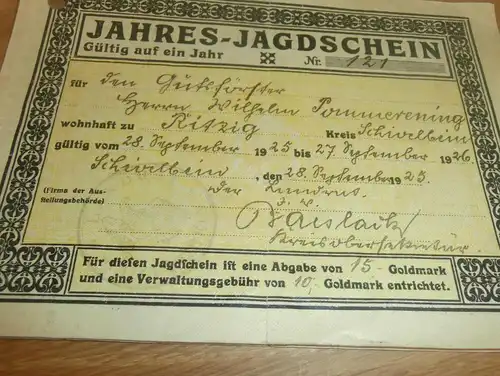 JAHRES-JAGDSCHEIN
Gültig auf ein Jahr Nr. 121
für den Gutsförster
Herrn Wilhelm Pommerening
wohnhaft zu Ritzig Kreis Schivelbein
gültig vom 28. September 1925 bis 27. September 1926
Schivelbein, den 28. September 1925
(Firma der Aus-
stellungsbehörde) Der Landrat
J. V.
Baeslack
Kreisobersekretär.
Für diesen Jagdschein ist eine Abgabe von 15 Goldmark
und eine Verwaltungsgebühr von 10, Goldmark entrichtet.